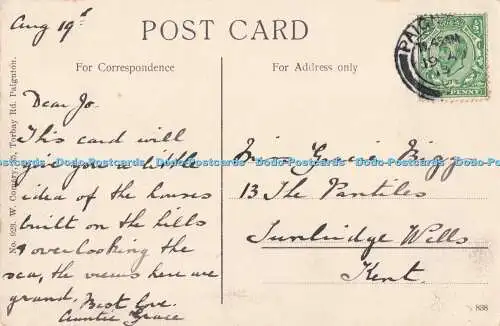 Aug 19th
POST CARD
For Correspondence
For Address only
PAIGN
HALFPENNY
No. 929. W. Comery, Torbay Rd. Paignton.
Dear Jo.
This card will
give you a little
idea of the houses
built on the hills
& overlooking the
sea, the views here are
grand. Best love.
Auntie Grace
Miss Gracie
13 The Pantiles
Tunbridge Wells
Kent.
838
Dodo-Postcards Dodo-Postcards Dodo-Postcards Dodo-Postcards Dodo-Postcards